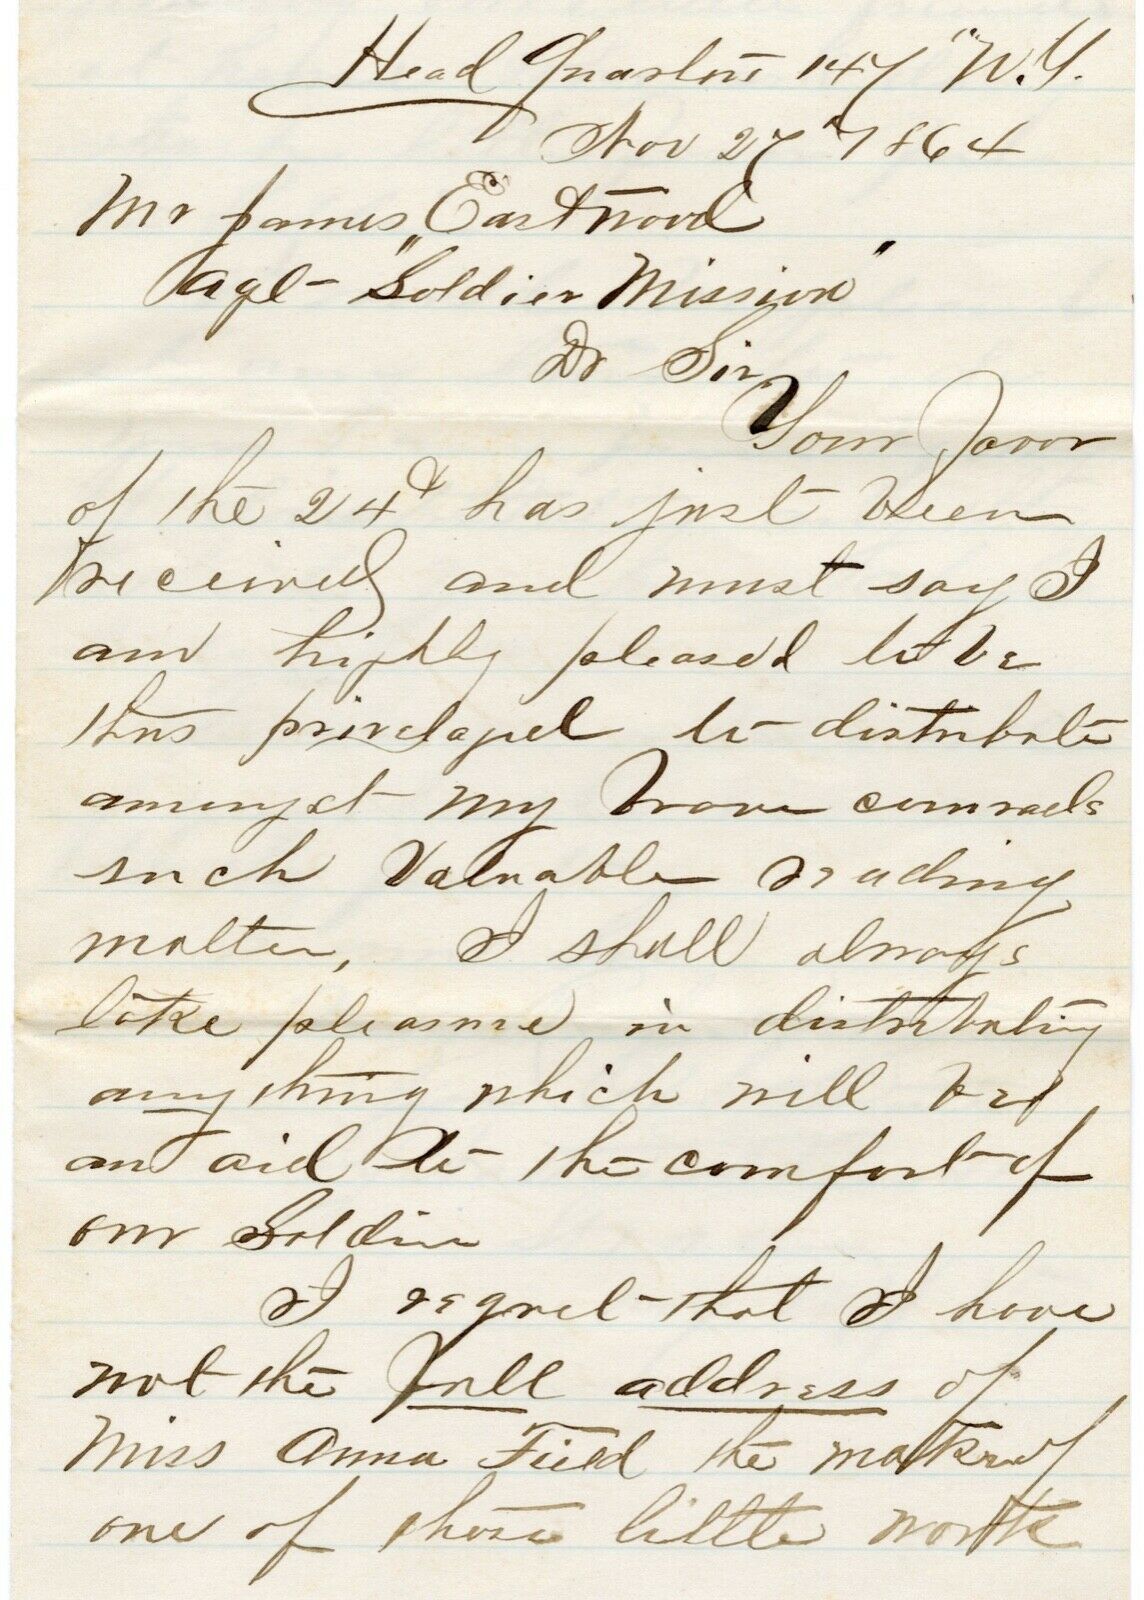 Head Quarters 147 "N.Y.
Nov 27" 1864
Mr James Eastwood
Agt - "Soldier Mission"
Dr Sir
Your favor
of the 24th has just been
received and must say I
am highly pleased to be
thus privelaged to distribute
amongst my brave comrads
such valuable reading
matter, I shall always
take pleasure in distributing
anything which will be
an aid to the comfort of
our Soldier
I regret that I have
not the full address of
Miss Anna Field the maker of
one of those little work